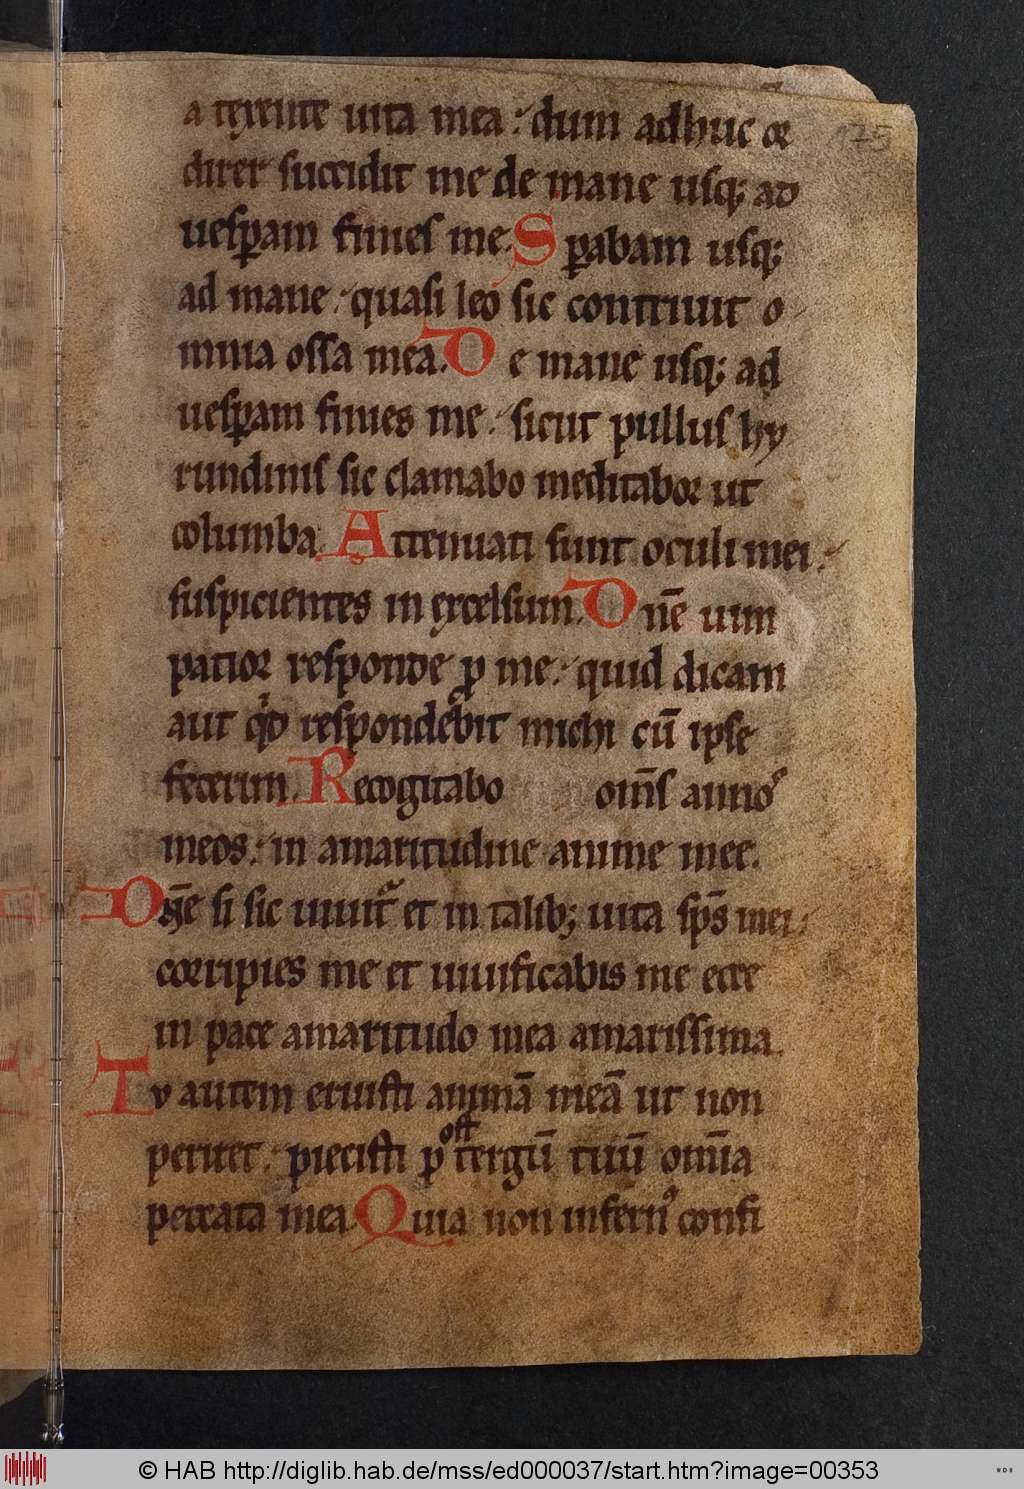 175
a texente uita mea. dum adhuc or
direr succidit me de mane usq; ad
uesꝑam finies me. Sꝑabam usq;
ad mane. quasi leo sic contriuit o
mnia ossa mea. De mane usq; ad
uesꝑam finies me. sicut pullus hy
rundinis sic clamabo meditabor ut
columba. Attenuati sunt oculi mei.
suspicientes in excelsum. Dn̄e uim
patior responde ꝓ me. quid dicam
aut qͥd respondebit michi cū ipse
fecerim. Recogitabo om̄s anno
meos. in amaritudine anime mee.
Dn̄e si sic uiuit᷑ et in talib; uita sp̄s mei.
corripies me et uiuificabis me ecce
in pace amaritudo mea amarissima.
Tv autem eruisti animā meā ut non
periret. piecisti post tergū tuū om̄ia
peccata mea. Quia non infernꝰ confi
© HAB http://diglib.hab.de/mss/ed000037/start.htm?image=00353